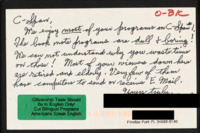 O-BK
C-Span,
We enjoy most of your programs on C-Span!
The book notes programs are dull & boring!
We can not understand why you waste time
on them! Most of your viewers down here
are retired and elderly. Very few of them
have computers to send or receive E Mail.
Yours truly,
Citizenship Tests Should
Be In English Only!
Cut Bilingual Programs
Americans Speak English